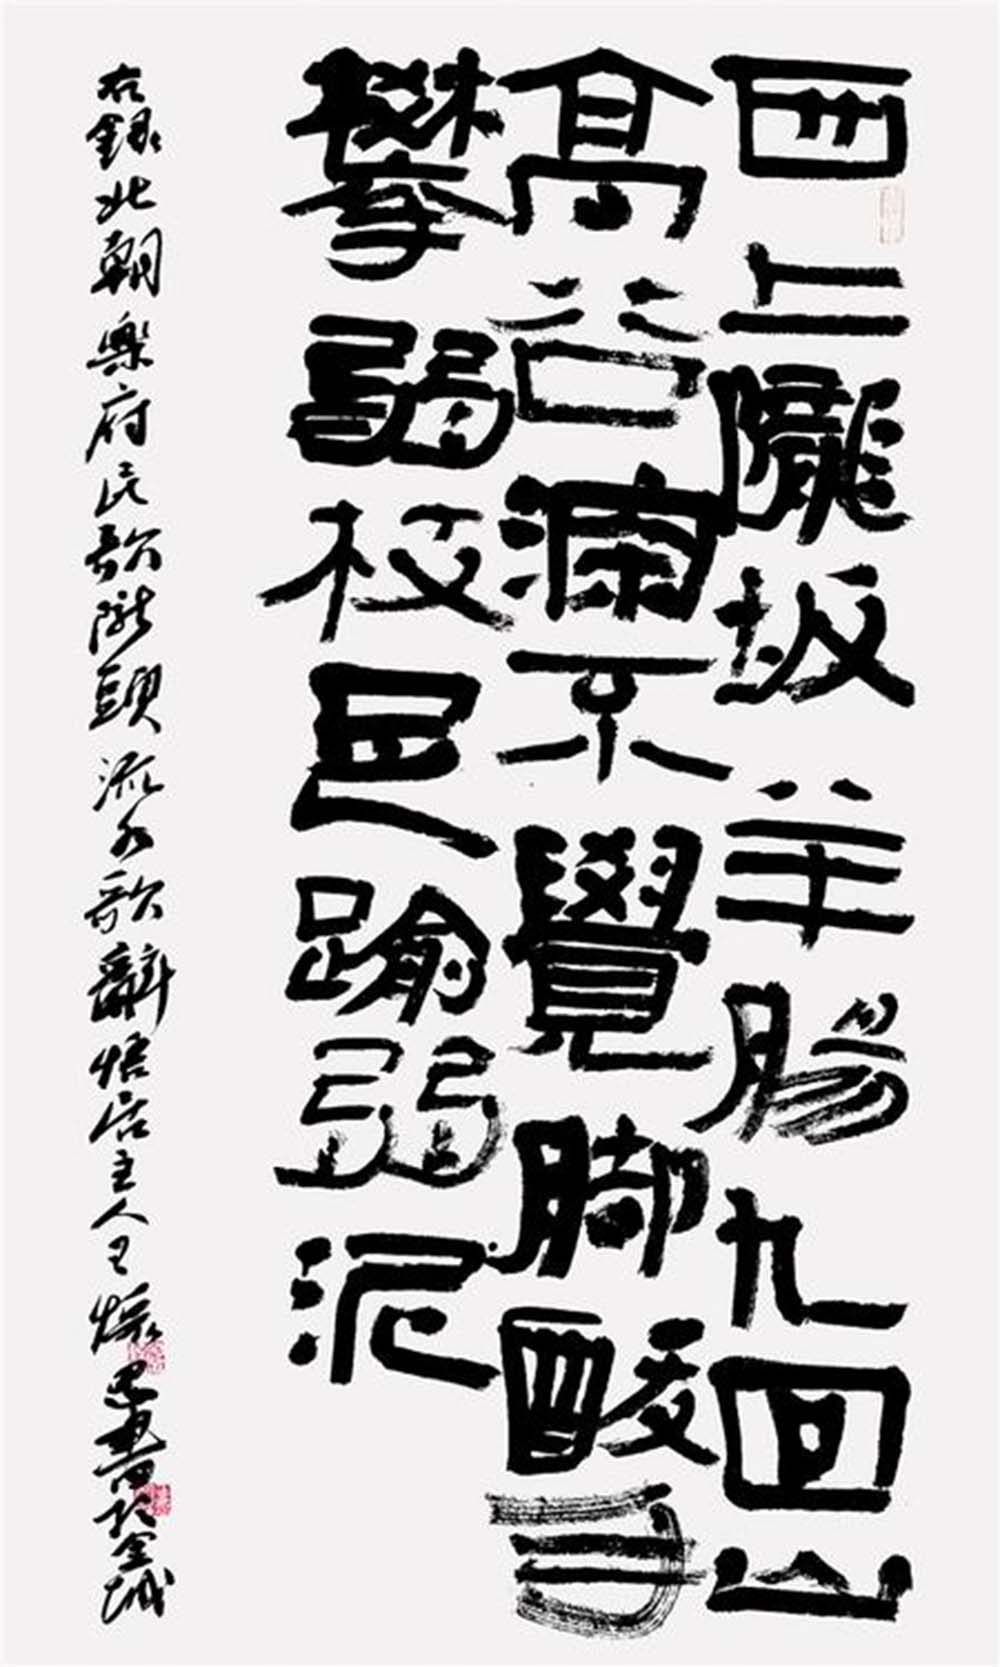 西上隴坂羊腸九回山
高谷深不覺脚酸手
攀弱枝足踰弱泥
右錄北朝樂府民歌隴頭流水歌辭悟居主人王書於金城